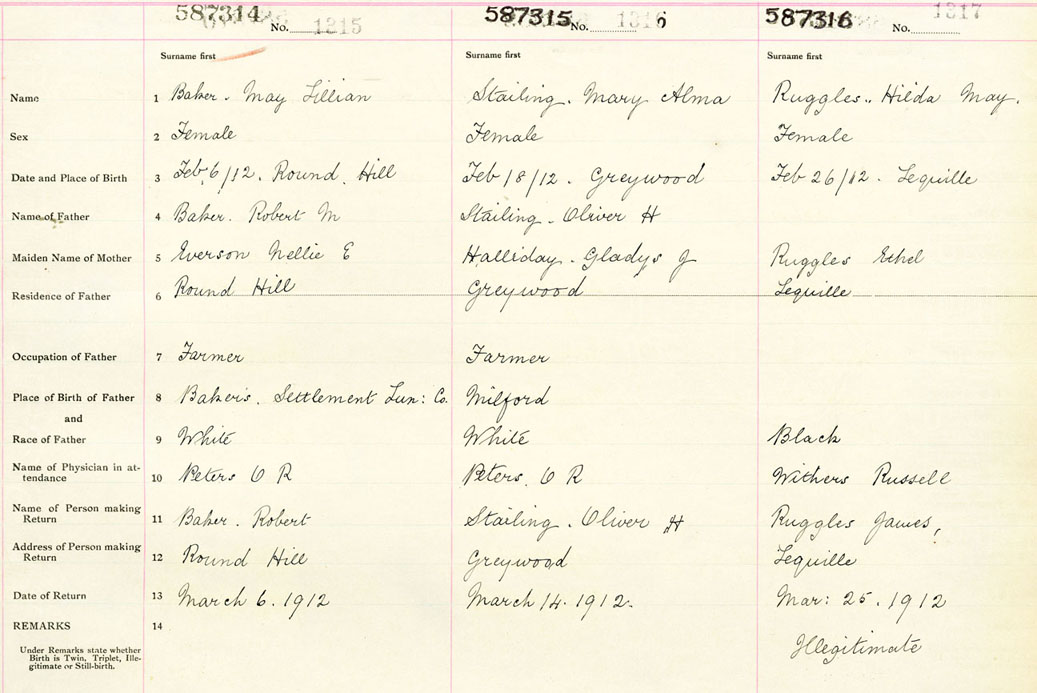 587314 587315 587316
No. 1215 No. 1316 6 No. 1317
Surname first Surname first Surname first
Name 1 Baker. May Lillian Stailing. Mary Alma Ruggles.. Hilda May.
Sex 2 Female Female Female
Date and Place of Birth 3 Feb 6/12. Round Hill Feb 18/12. Greywood Feb 26/12. Lequille
Name of Father 4 Baker. Robert M Stailing. Oliver H
Maiden Name of Mother 5 Everson Nellie E Halliday. Gladys J Ruggles Ethel
Residence of Father 6 Round Hill Greywood Lequille
Occupation of Father 7 Farmer Farmer
Place of Birth of Father 8 Baker's. Settlement Lun: Co. Milford
and
Race of Father 9 White White Black
Name of Physician in at-
tendance 10 Peters O R Peters. O R Withers Russell
Name of Person making
Return 11 Baker. Robert Stailing. Oliver H Ruggles James,
Address of Person making
Return 12 Round Hill Greywood Lequille
Date of Return 13 March 6. 1912 March 14. 1912. Mar: 25. 1912
REMARKS 14
Illegitimate
Under Remarks state whether
Birth is Twin, Triplet, Ille-
gitimate or Still-birth.